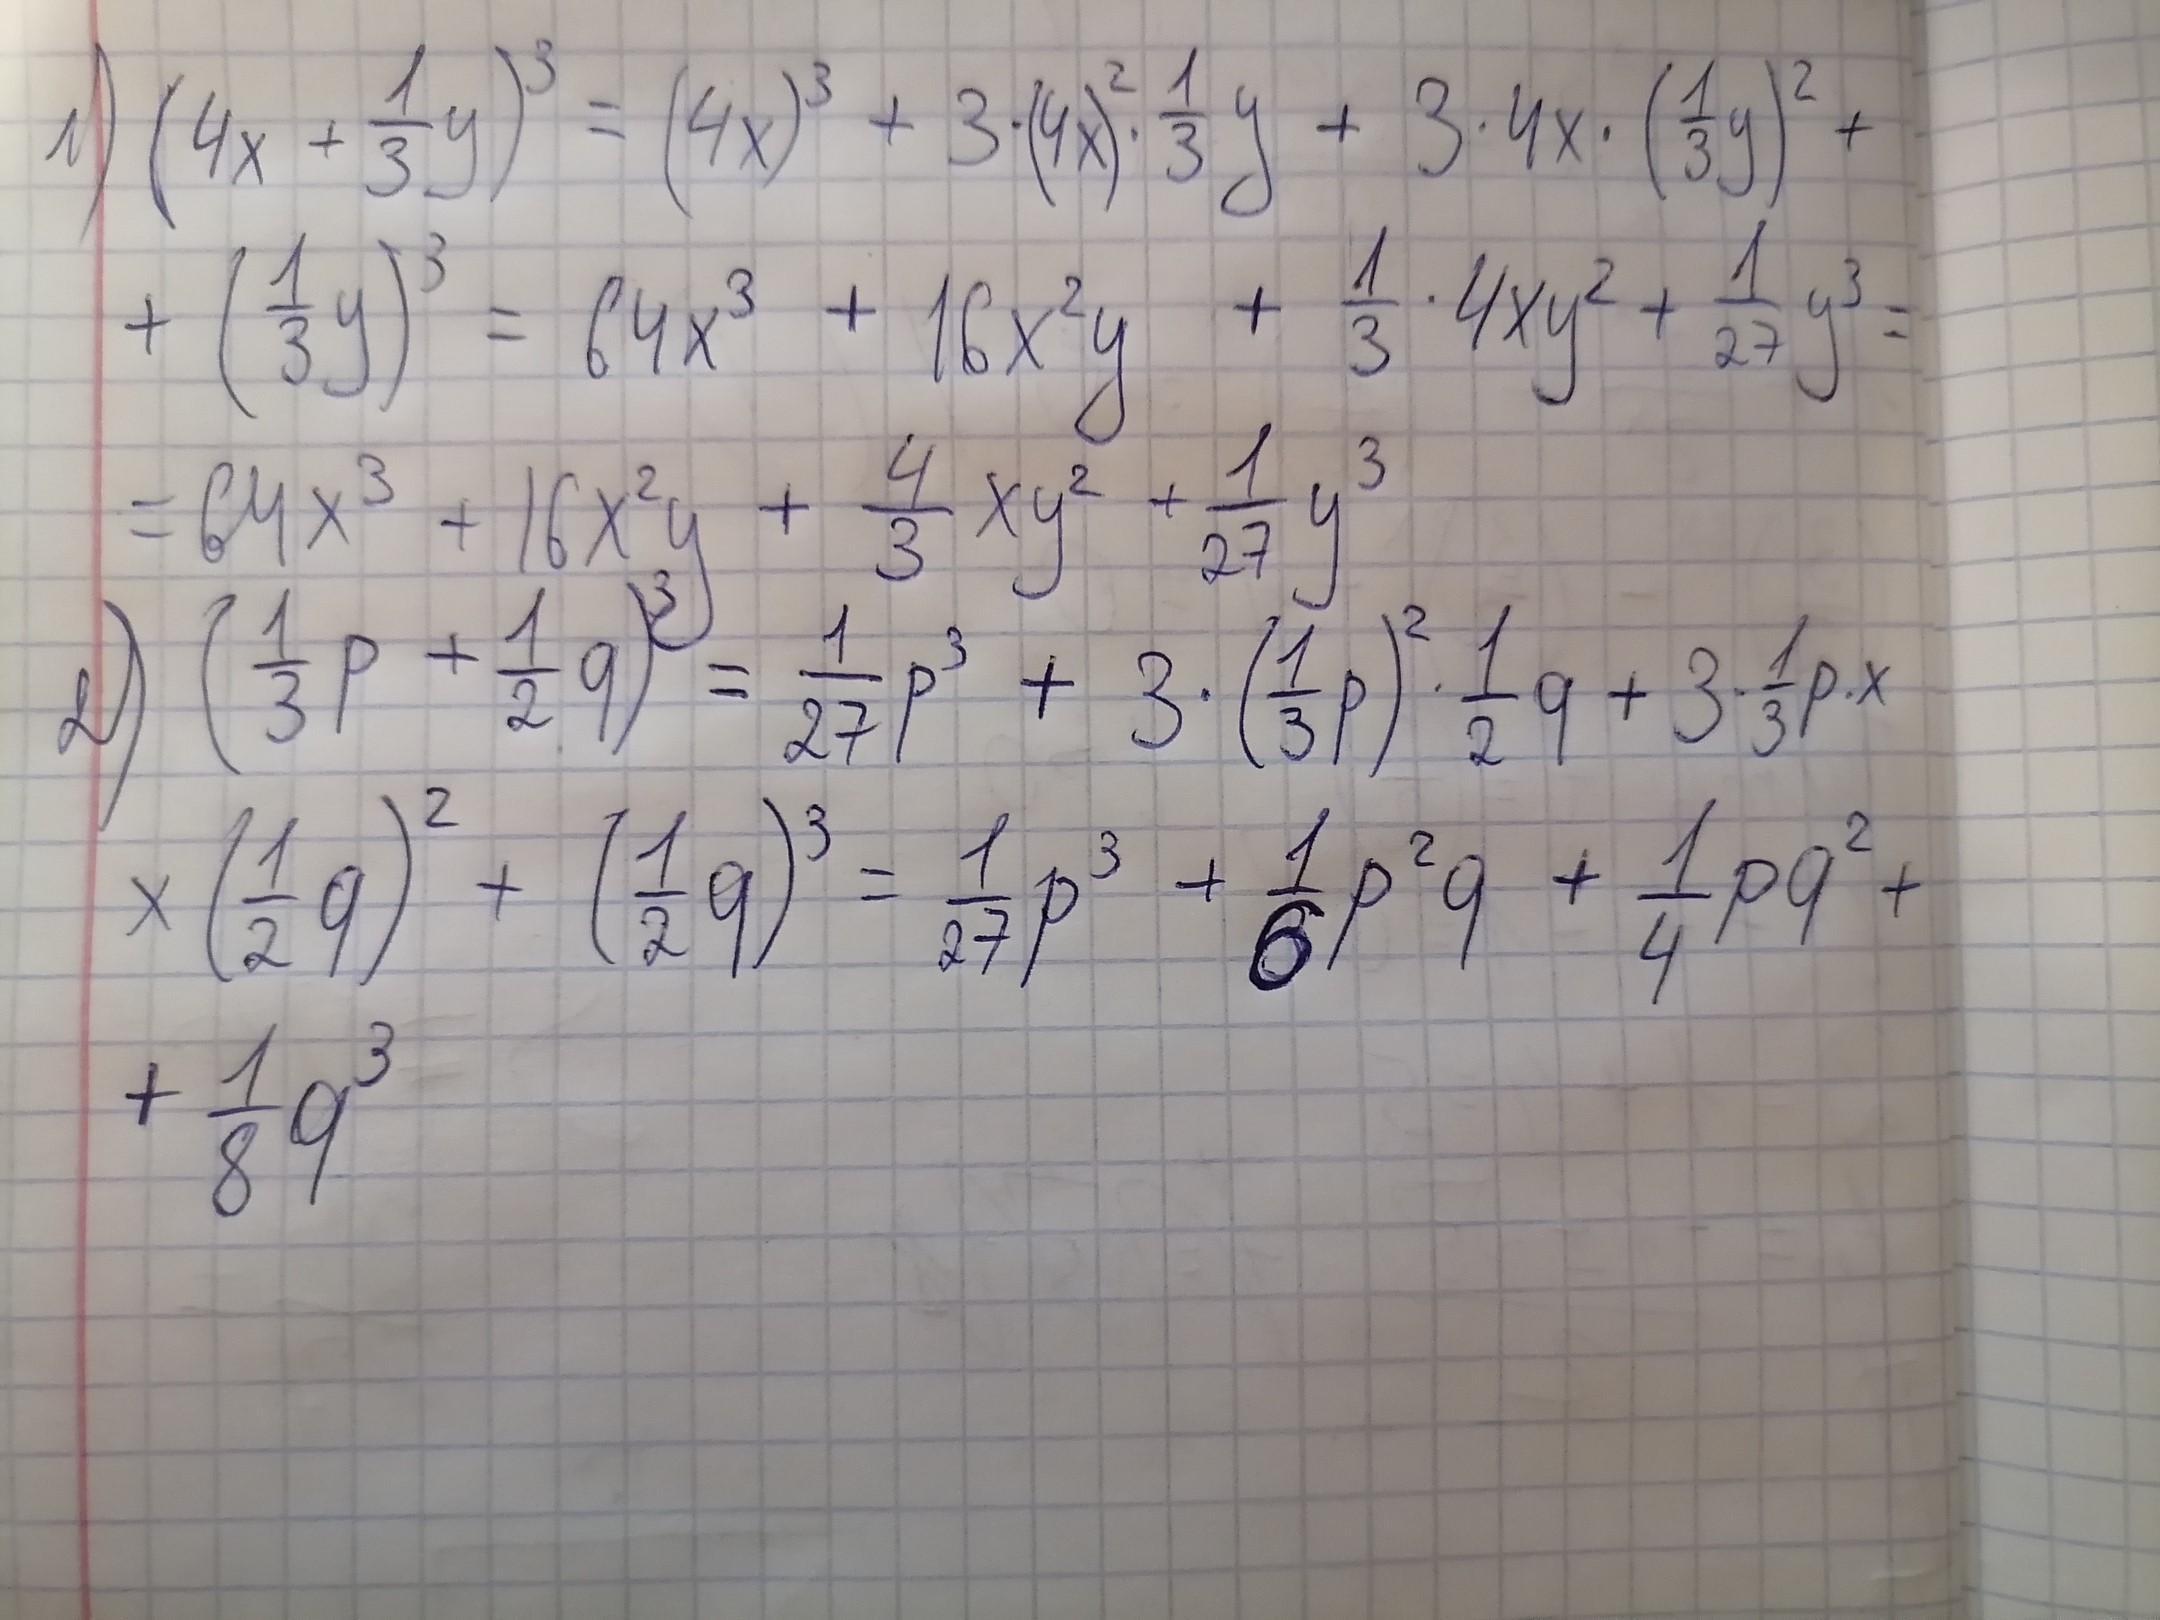 1) (4x + 1/3 y)³ = (4x)³ + 3·(4x)²·1/3 y + 3·4x·(1/3 y)² +
+ (1/3 y)³ = 64x³ + 16x²y + 1/3·4xy² + 1/27 y³ =
= 64x³ + 16x²y + 4/3 xy² + 1/27 y³
2) (1/3 p + 1/2 q)³ = 1/27 p³ + 3·(1/3 p)²·1/2 q + 3·1/3 p·x
x (1/2 q)² + (1/2 q)³ = 1/27 p³ + 1/6 p²q + 1/4 pq² +
+ 1/8 q³